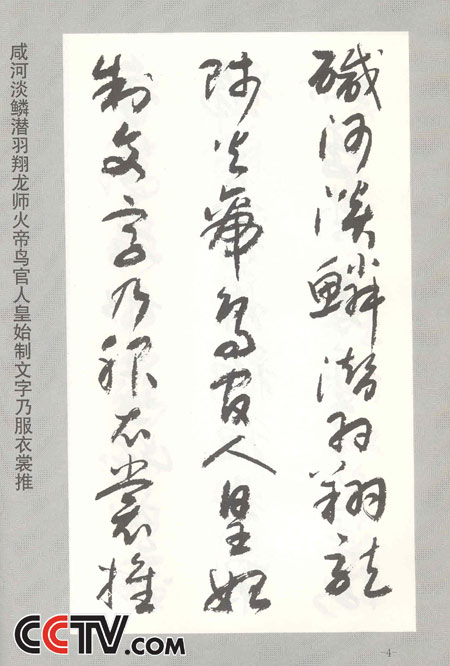 鹹河淡鱗潛羽翔龍
師火帝鳥官人皇始
制文字乃服衣裳推
咸河淡鳞潜羽翔龙师火帝鸟官人皇始制文字乃服衣裳推
-4-
CCTV.com